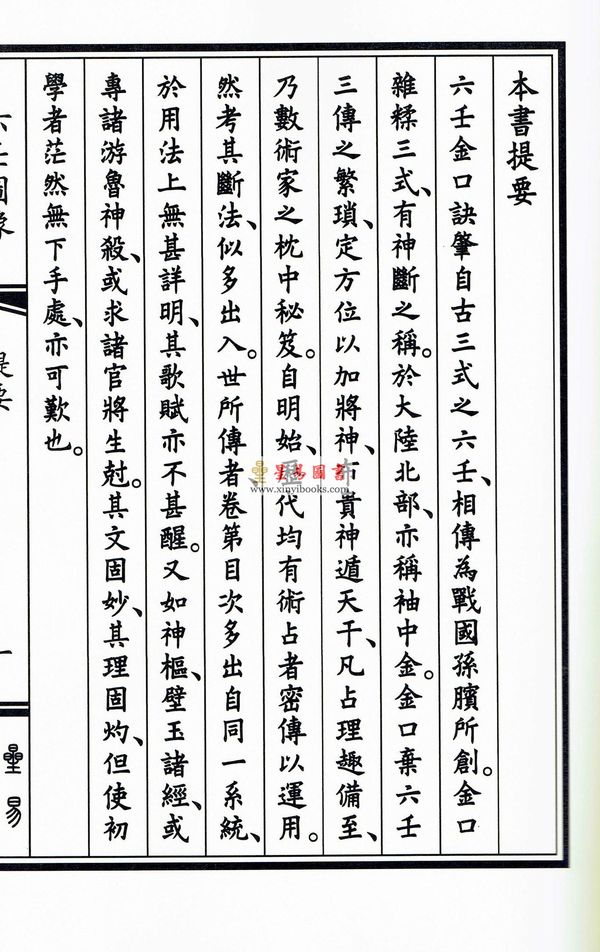 本書提要
六壬金口訣肇自古三式之六壬、相傳為戰國孫臏所創。金口
雜糅三式、有神斷之稱。於大陸北部、亦稱袖中金。金口棄六壬
三傳之繁瑣、定方位以加將神、布貴神遁天干、凡占理趣備至、
乃數術家之枕中秘笈。自明始、歷代均有術占者密傳以運用。
然考其斷法、似多出入。世所傳者卷第目次多出自同一系統、
於用法上無甚詳明、其歌賦亦不甚醒。又如神樞、壁玉諸經、或
專諸游魯神殺、或求諸官將生尅。其文固妙、其理固灼、但使初
學者茫然無下手處、亦可歎也。
提要
一
曐易
星易圖書
www.xinyibooks.com